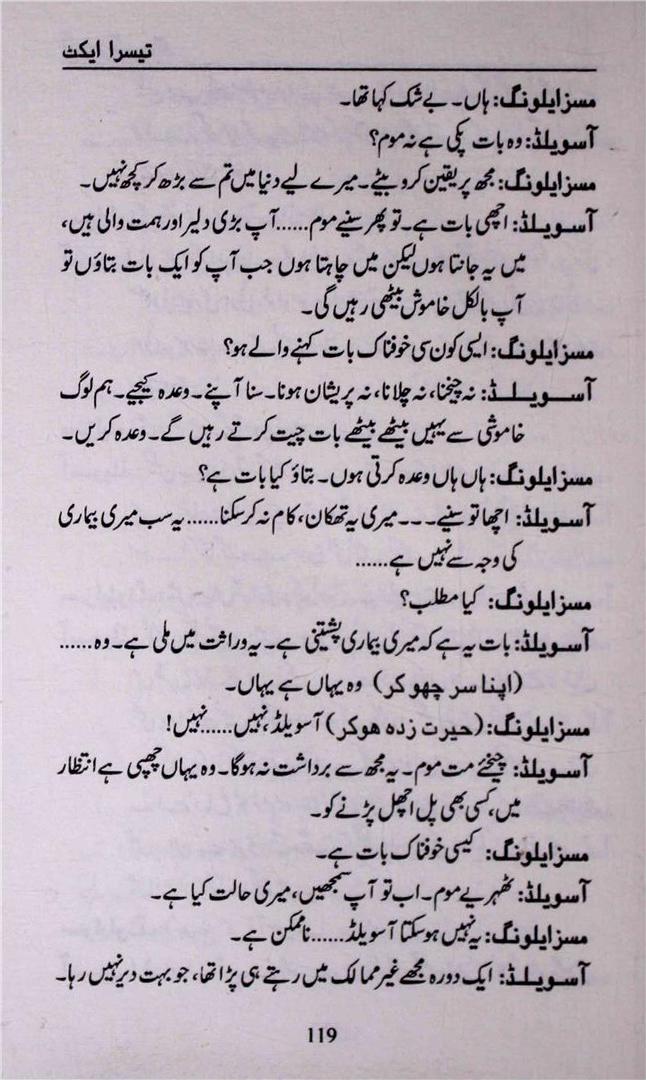 تیسرا ایکٹ
مسز ایلونگ: ہاں۔ بے شک کہا تھا۔
آسویلڈ: وہ بات پکی ہے نہ موم؟
مسز ایلونگ: مجھ پر یقین کرو بیٹے۔ میرے لیے دنیا میں تم سے بڑھ کر کچھ نہیں۔
آسویلڈ: اچھی بات ہے۔ تو پھر سنیے موم...... آپ بڑی دلیر اور ہمت والی ہیں،
میں یہ جانتا ہوں لیکن میں چاہتا ہوں جب آپ کو ایک بات بتاؤں تو
آپ بالکل خاموش بیٹھی رہیں گی۔
مسز ایلونگ: ایسی کون سی خوفناک بات کہنے والے ہو؟
آسویلڈ: نہ چیخنا، نہ چلانا، نہ پریشان ہونا۔ سنا آپنے۔ وعدہ کیجیے۔ ہم لوگ
خاموشی سے یہیں بیٹھے بیٹھے بات چیت کرتے رہیں گے۔ وعدہ کریں۔
مسز ایلونگ: ہاں ہاں وعدہ کرتی ہوں۔ بتاؤ کیا بات ہے؟
آسویلڈ: اچھا تو سنیے۔۔۔ میری یہ تھکان، کام نہ کر سکنا...... یہ سب میری بیماری
کی وجہ سے نہیں ہے......
مسز ایلونگ: کیا مطلب؟
آسویلڈ: بات یہ ہے کہ میری بیماری پشتینی ہے۔ یہ وراثت میں ملی ہے۔ وہ......
(اپنا سر چھو کر) وہ یہاں ہے یہاں۔
مسز ایلونگ: (حیرت زدہ ہوکر) آسویلڈ، نہیں...... نہیں!
آسویلڈ: چیخئے مت موم۔ یہ مجھ سے برداشت نہ ہوگا۔ وہ یہاں چھپی ہے انتظار
میں، کسی بھی پل اچھل پڑنے کو۔
مسز ایلونگ: کیسی خوفناک بات ہے۔
آسویلڈ: ٹھہریے موم۔ اب تو آپ سمجھیں، میری حالت کیا ہے۔
مسز ایلونگ: یہ نہیں ہو سکتا آسویلڈ...... ناممکن ہے۔
آسویلڈ: ایک دورہ مجھے غیر ممالک میں رہتے ہی پڑا تھا، جو بہت دیر نہیں رہا۔
119